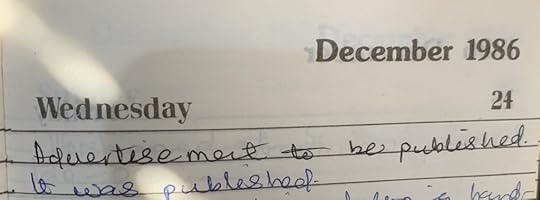 December 1986
Wednesday 24
Advertisement to be published.
It was published.